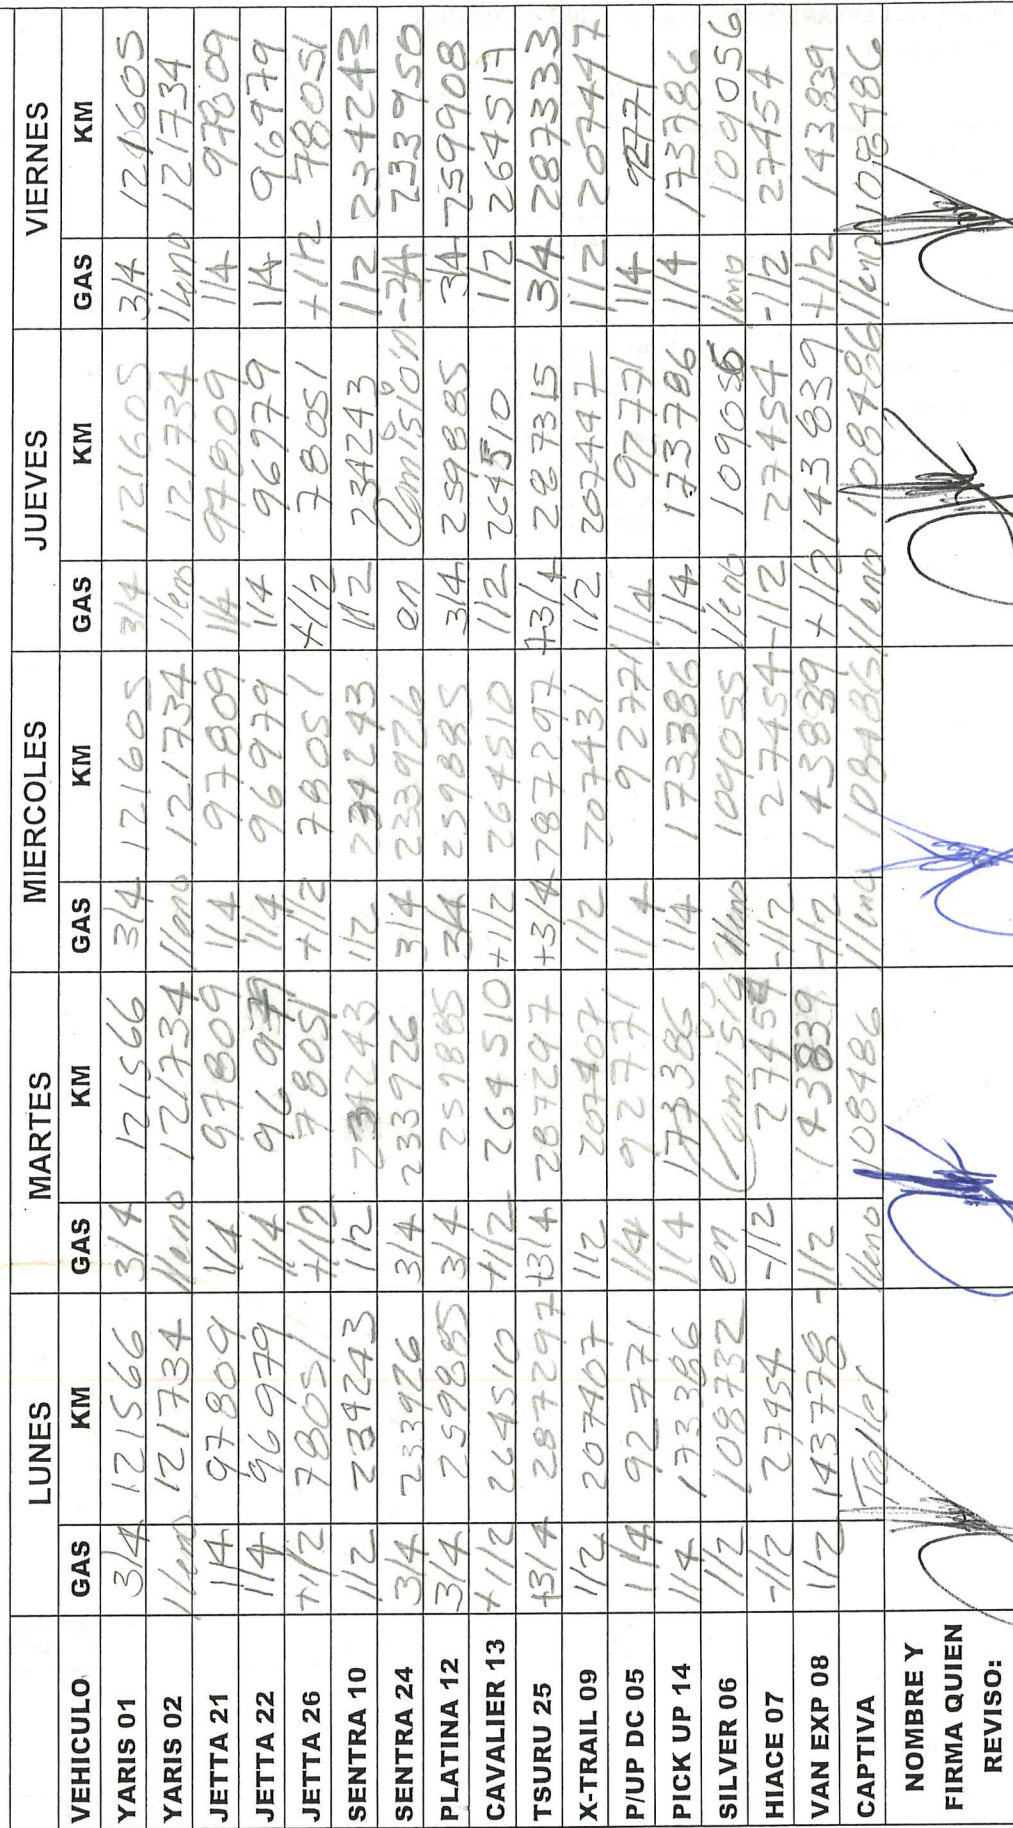 LUNES MARTES MIERCOLES JUEVES VIERNES
VEHICULO GAS KM GAS KM GAS KM GAS KM GAS KM
YARIS 01 3/4 121566 3/4 121566 3/4 121605 3/4 121605 3/4 121605
YARIS 02 lleno 121734 lleno 121734 lleno 121734 lleno 121734 lleno 121734
JETTA 21 1/4 97809 1/4 97809 1/4 97809 1/4 97809 1/4 97809
JETTA 22 1/4 96979 1/4 96979 1/4 96979 1/4 96979 1/4 96979
JETTA 26 +1/2 78051 +1/2 78051 +1/2 78051 +1/2 78051 +1/2 78051
SENTRA 10 1/2 234243 1/2 234243 1/2 234243 1/2 234243 1/2 234243
SENTRA 24 3/4 233926 3/4 233926 3/4 233926 en Comisión -3/4 233950
PLATINA 12 3/4 259885 3/4 259885 3/4 259885 3/4 259885 3/4 259908
CAVALIER 13 +1/2 264510 +1/2 264510 +1/2 264510 1/2 264510 1/2 264517
TSURU 25 +3/4 287297 +3/4 287297 +3/4 287297 +3/4 287315 3/4 287333
X-TRAIL 09 1/2 207407 1/2 207407 1/2 207431 1/2 207447 1/2 207447
P/UP DC 05 1/4 92771 1/4 92771 1/4 92771 1/4 92771 1/4 92771
PICK UP 14 1/4 173386 1/4 173386 1/4 173386 1/4 173786 1/4 173786
SILVER 06 1/2 108732 en Comisión lleno 109055 lleno 109056 lleno 109056
HIACE 07 -1/2 27454 -1/2 27454 -1/2 27454 -1/2 27454 -1/2 27454
VAN EXP 08 1/2 143778 -1/2 143839 +1/2 143839 +1/2 143839 +1/2 143839
CAPTIVA Taller lleno 108486 lleno 108486 lleno 108486 lleno 108486
NOMBRE Y
FIRMA QUIEN
REVISO: